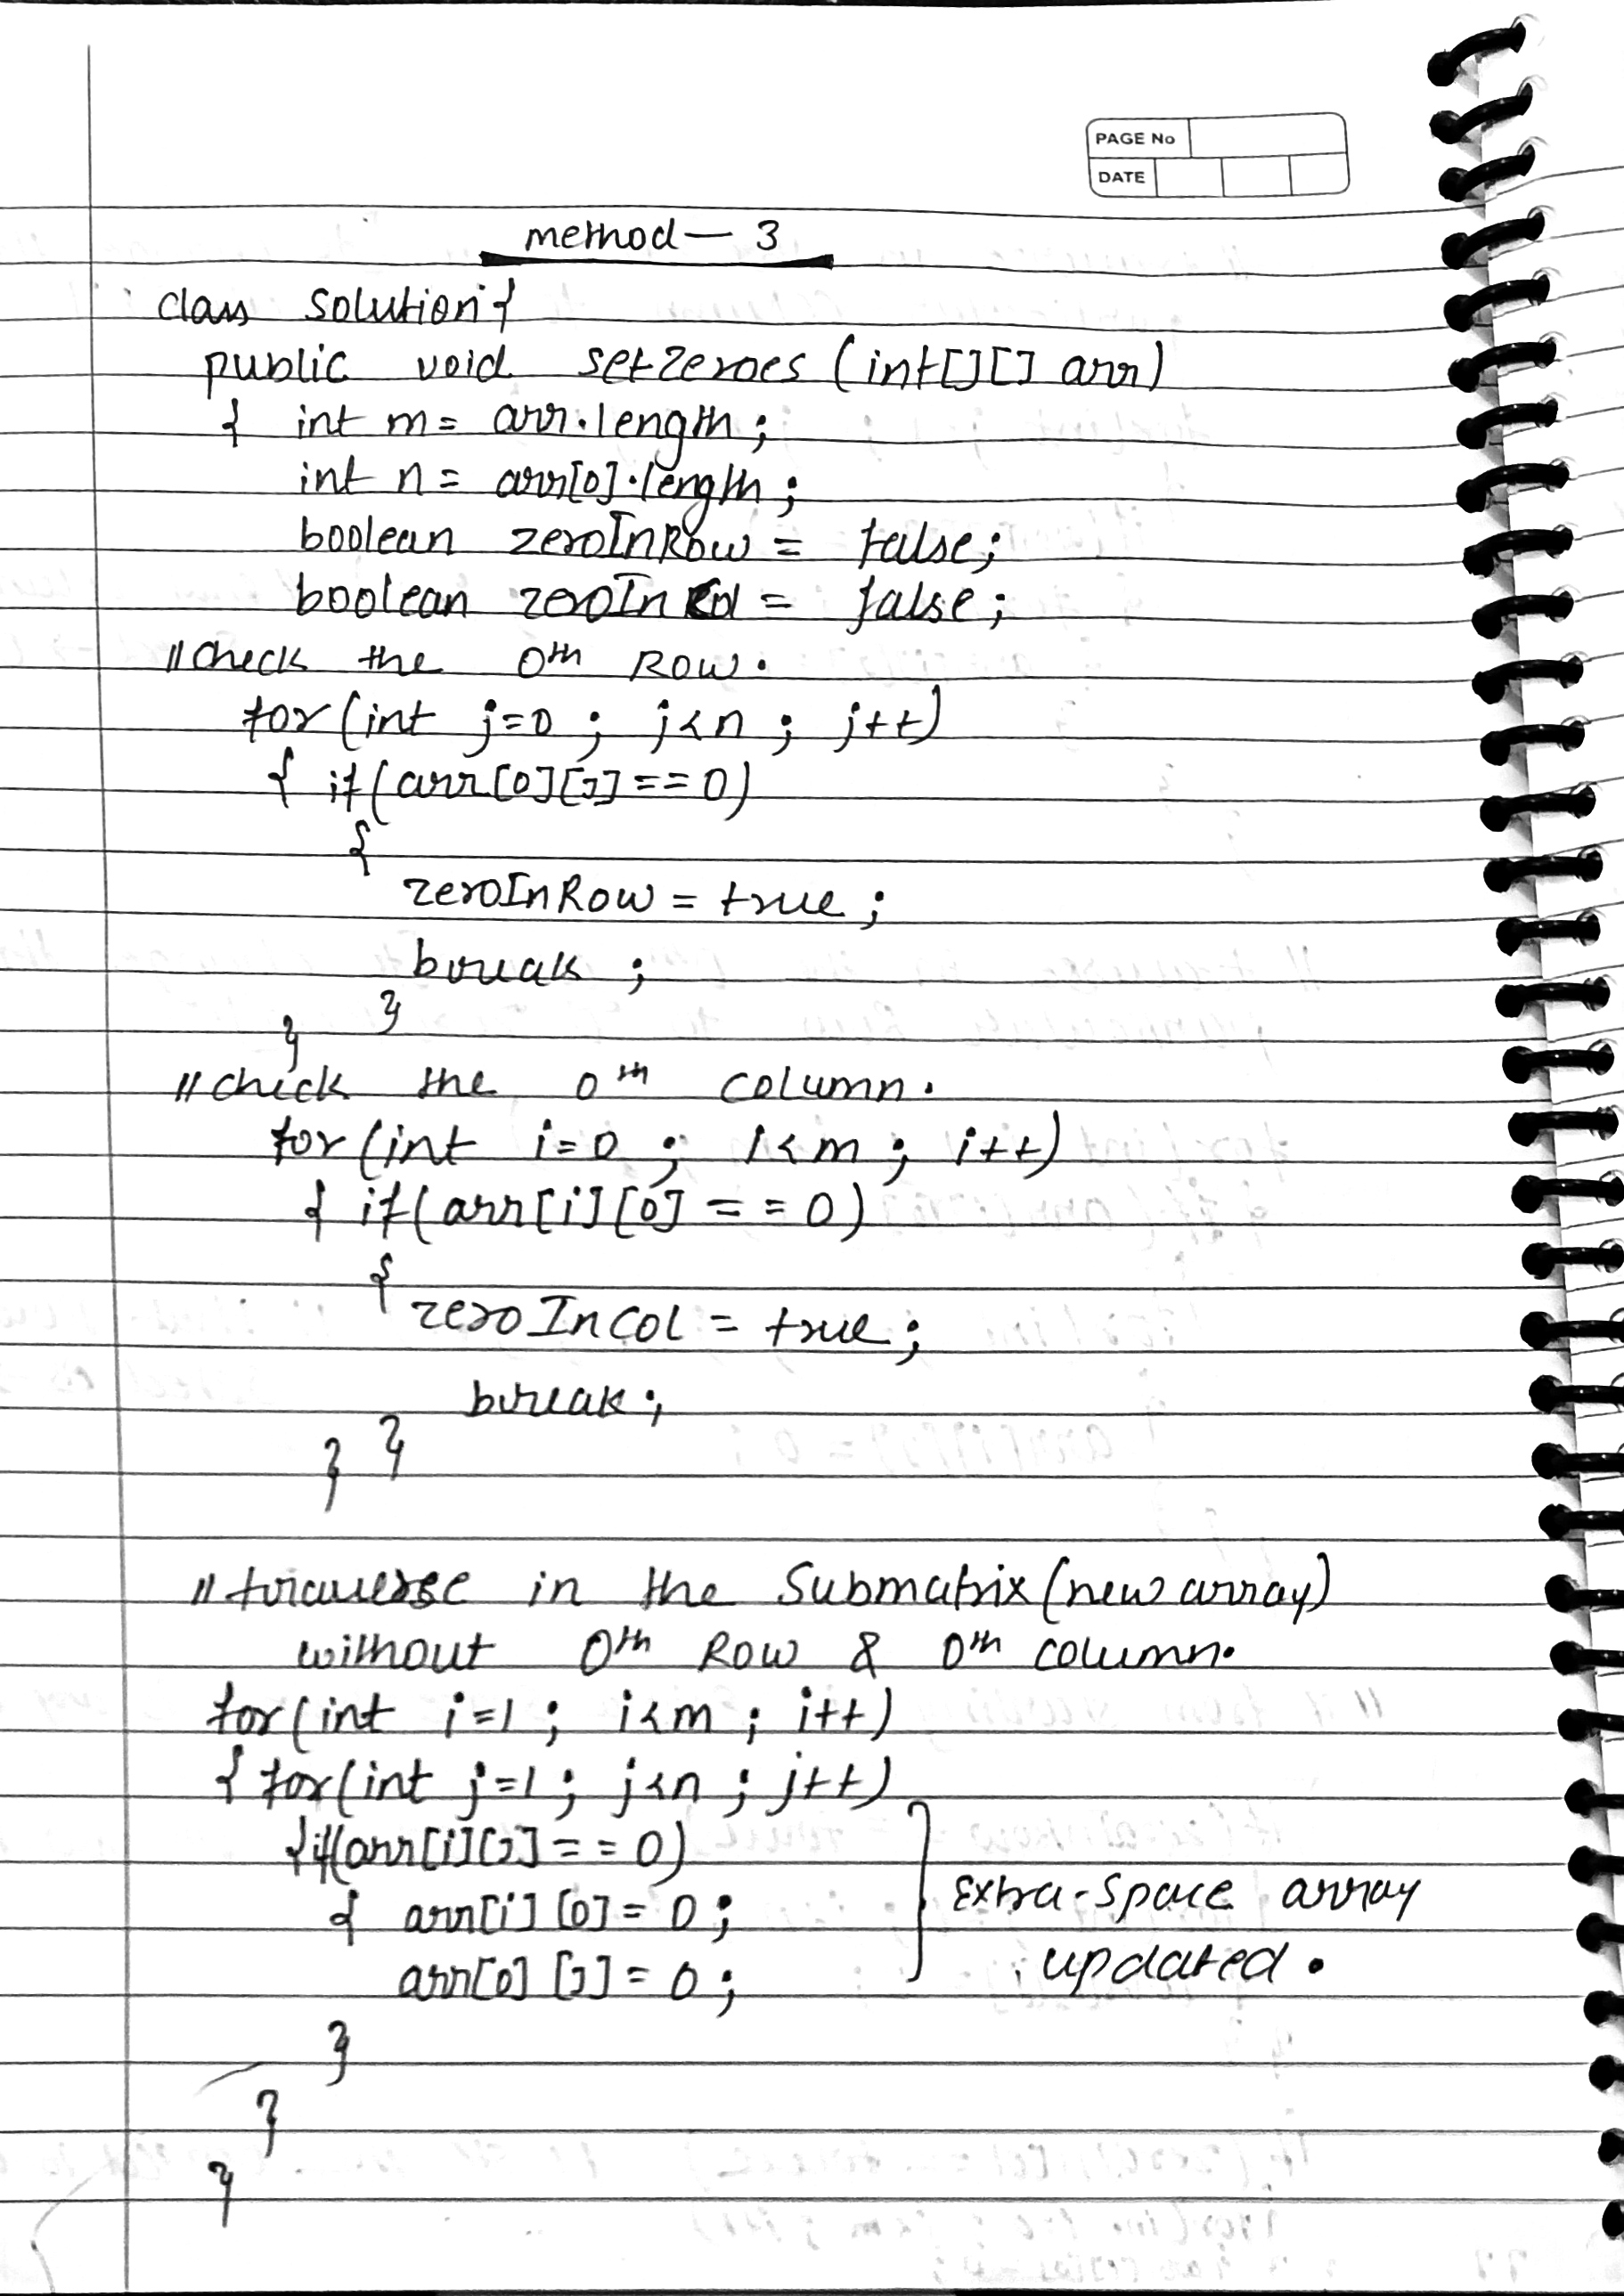 PAGE No
DATE
method — 3
class Solution {
public void setZeroes (int[][] arr)
{ int m = arr.length;
int n = arr[0].length;
boolean zeroInRow = false;
boolean zeroInCol = false;
// check the 0th Row.
for (int j=0 ; j<n ; j++)
{ if (arr[0][j] == 0)
{
zeroInRow = true ;
break ;
}
}
// check the 0th column.
for (int i=0 ; i<m ; i++)
{ if (arr[i][0] == 0)
{
zeroInCol = true ;
break ;
} }
// traverse in the Submatrix (new array)
without 0th Row & 0th column.
for (int i=1 ; i<m ; i++)
{ for (int j=1 ; j<n ; j++)
{ if (arr[i][j] == 0)
{ arr[i][0] = 0 ; } Extra-space array
arr[0][j] = 0 ; updated.
}
}
}